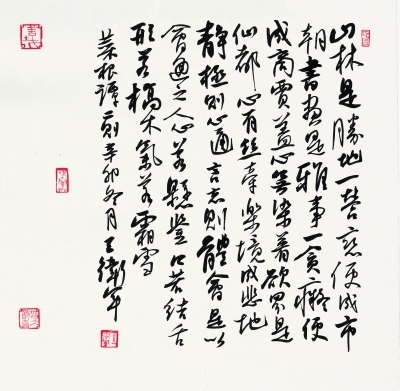 山林是勝地一營戀便成市
朝書畫是雅事一貪癡便
成商賈蓋心無染著欲界是
仙都心有絲牽樂境成悲地
靜極則心通言忘則體會是以
會通之人心若懸鑒口若結舌
形若槁木氣若霜雪
菜根譚二則辛卯冬月王衛軍